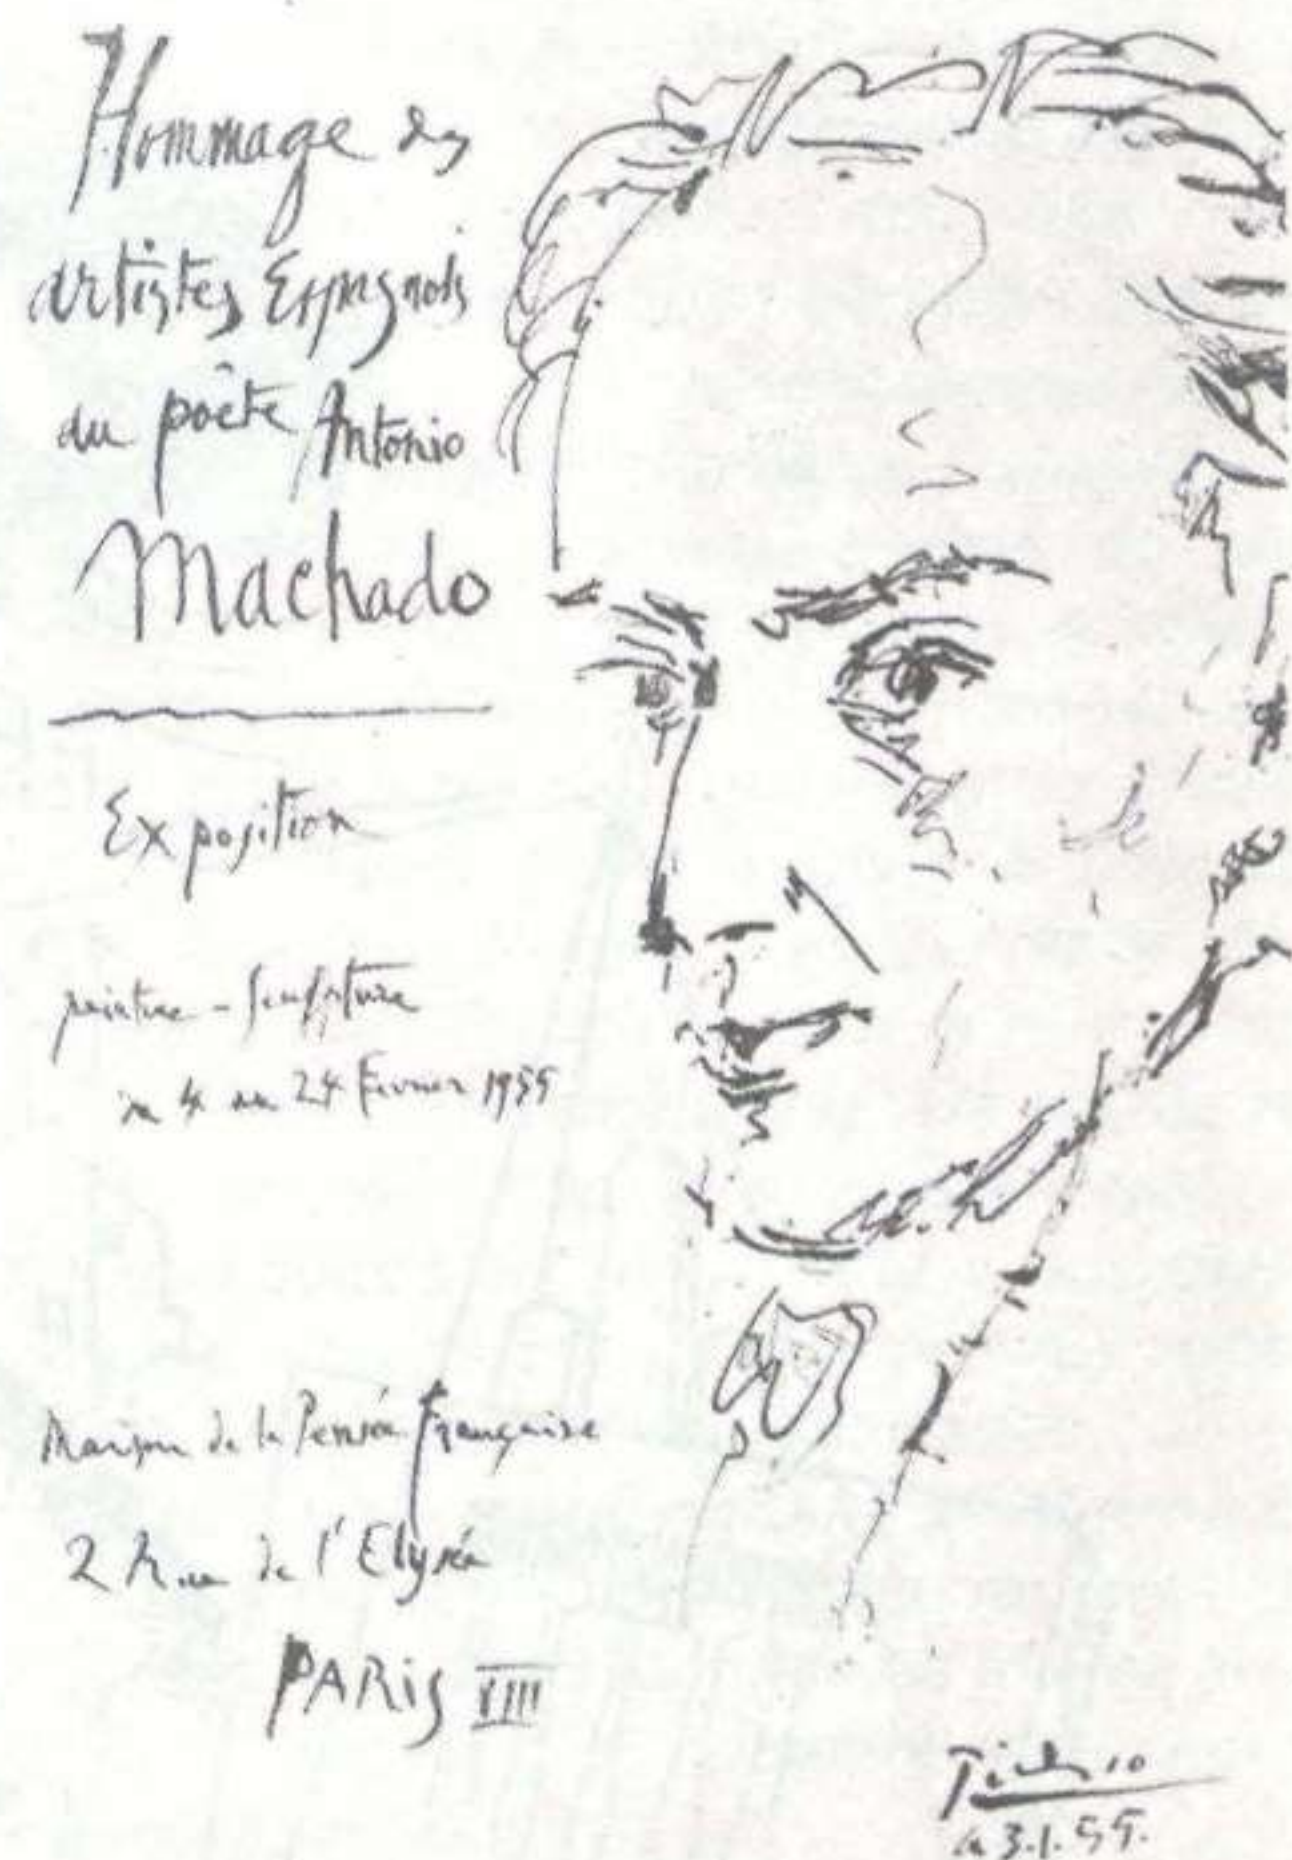 Hommage des
artistes Espagnols
au poête Antonio
Machado
Exposition
peinture - sculpture
du 4 au 24 Fevrier 1955
Maison de la Pensée Française
2 Rue de l'Elysée
PARIS VIII
Picasso
le 3.1.55.